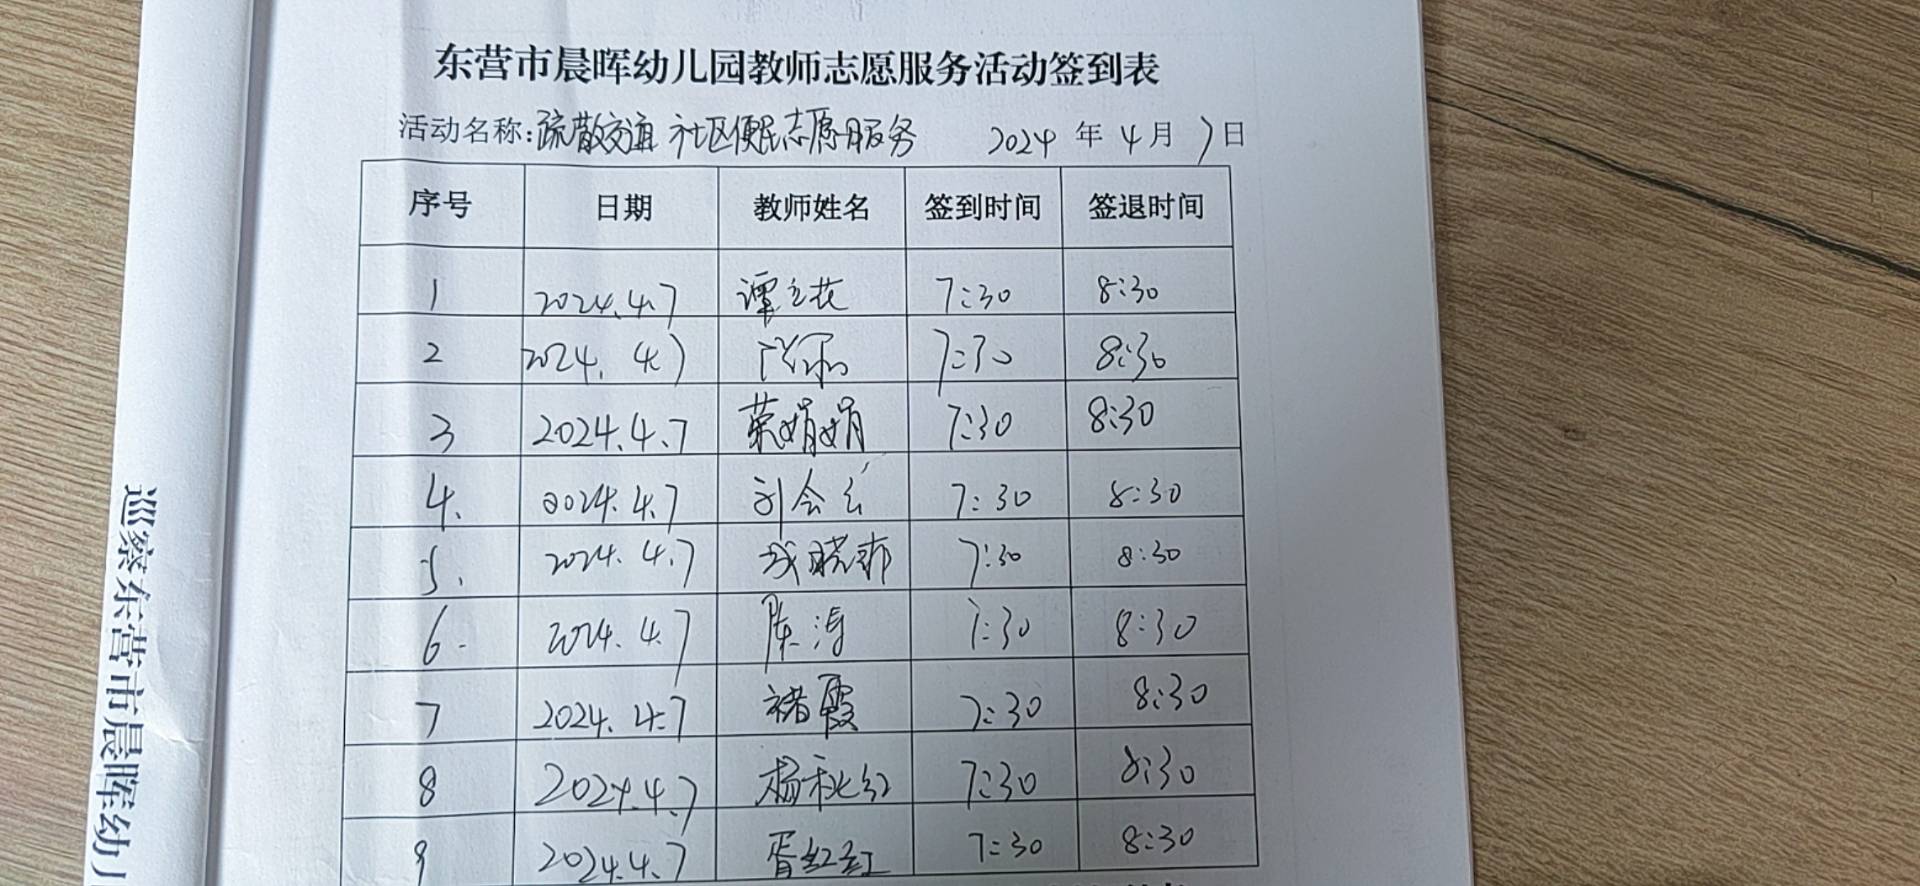 东营市晨晖幼儿园教师志愿服务活动签到表
活动名称:疏散交通 社区便民志愿服务 2024 年 4 月 7 日
序号 日期 教师姓名 签到时间 签退时间
1 2024.4.7 谭立花 7:30 8:30
2 2024.4.7 7:30 8:30
3 2024.4.7 荣娟娟 7:30 8:30
4. 2024.4.7 刘会云 7:30 8:30
5. 2024.4.7 7:30 8:30
6. 2024.4.7 陈涛 7:30 8:30
7 2024.4.7 褚霞 7:30 8:30
8 2024.4.7 杨秋红 7:30 8:30
9 2024.4.7 胥红红 7:30 8:30
巡察东营市晨晖幼儿